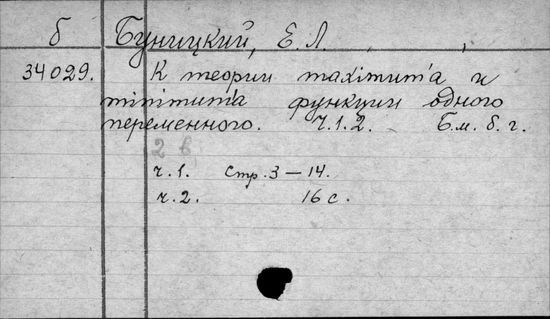 б Буницкий, Е. Л.
34029. К теории maximum'a и
minimum'a функции одного
переменного. Ч.1.2. Б.м.б.г.
2 в.
ч.1. Стр. 3 — 14.
ч.2. 16 с.